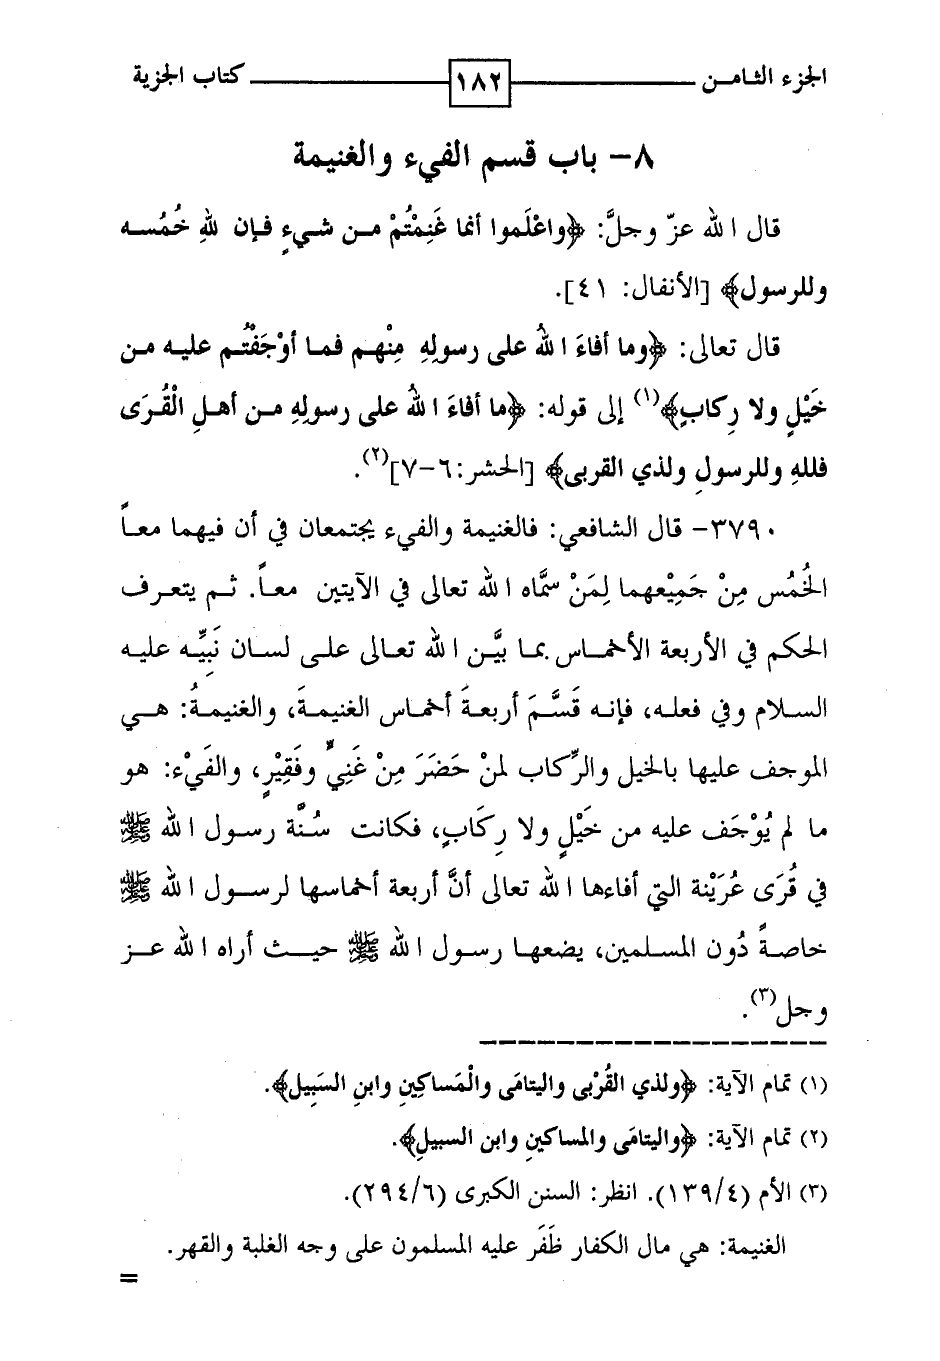 الجزء الثامن ١٨٢ كتاب الجزية
٨- باب قسم الفيء والغنيمة
قال الله عزّ وجلَّ: ﴿واعْلَموا أنما غَنِمْتُمْ من شيءٍ فإن للهِ خُمُسه
وللرسول﴾ [الأنفال: ٤١].
قال تعالى: ﴿وما أفاءَ اللهُ على رسولِهِ مِنْهم فما أوْجَفْتُم عليه من
خَيْلٍ ولا رِكابٍ﴾(١) إلى قوله: ﴿ما أفاءَ اللهُ على رسولِهِ من أهلِ الْقُرَى
فللهِ وللرسولِ ولذي القربى﴾ [الحشر:٦-٧](٢).
٣٧٩٠- قال الشافعي: فالغنيمة والفيء يجتمعان في أن فيهما معاً
الخُمُس مِنْ جَمِيْعهما لِمَنْ سمَّاه الله تعالى في الآيتين معاً. ثم يتعرف
الحكم في الأربعة الأخماس بما بيَّن الله تعالى على لسان نَبِيِّه عليه
السلام وفي فعله، فإنه قَسَّمَ أربعةَ أخماس الغنيمةَ، والغنيمةُ: هي
الموجف عليها بالخيل والرِّكاب لمنْ حَضَرَ مِنْ غَنِيٍّ وفَقِيْرٍ، والفَيْء: هو
ما لم يُوْجَف عليه من خَيْلٍ ولا رِكَابٍ، فكانت سُنَّة رسول الله ﷺ
في قُرَى عُرَيْنة التي أفاءها الله تعالى أنَّ أربعة أخماسها لرسول الله ﷺ
خاصةً دُون المسلمين، يضعها رسول الله ﷺ حيث أراه الله عز
وجل(٣).
(١) تمام الآية: ﴿ولذي القُرْبى واليتامَى والْمَساكِينِ وابنِ السَبِيل﴾.
(٢) تمام الآية: ﴿واليتامَى والمساكينِ وابن السبيلِ﴾.
(٣) الأم (١٣٩/٤). انظر: السنن الكبرى (٢٩٤/٦).
الغنيمة: هي مال الكفار ظَفَر عليه المسلمون على وجه الغلبة والقهر.
=